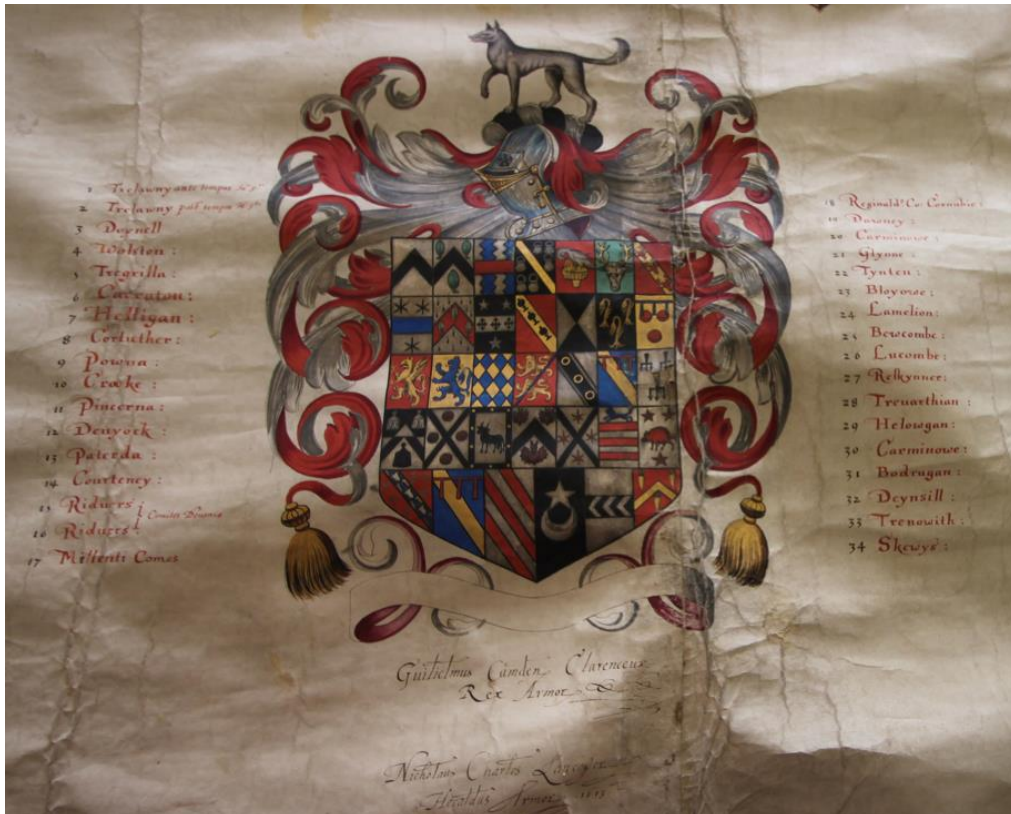 1 Trelawny ante tempus
2 Trelawny post tempus
3 Doynell
4 Wolston :
5 Tregrilla :
6 Carraton :
7 Helligan :
8 Corluther :
9 Powna :
10 Crocke :
11 Pincerna :
12 Denyock :
13 Paterda :
14 Courteney :
15 Riduers :
Comites Deuonia
16 Riduers :
17 Millenti Comes
18 Reginald Co: Cornubie :
19
20 Carminowe :
21 Glynne :
22 Tynten :
23 Bloyowe :
24 Lamelion :
25 Bewcombe :
26 Lucombe :
27 Relkynner :
28 Treuarthian :
29 Helowgan :
30 Carminowe :
31 Bodrugan :
32 Deynsill :
33 Trenowith :
34 Skewys :
Guilielmus Camden Clarenceux
Rex Armor
Nicholaus Charles Lancaster
Heroldus Armor